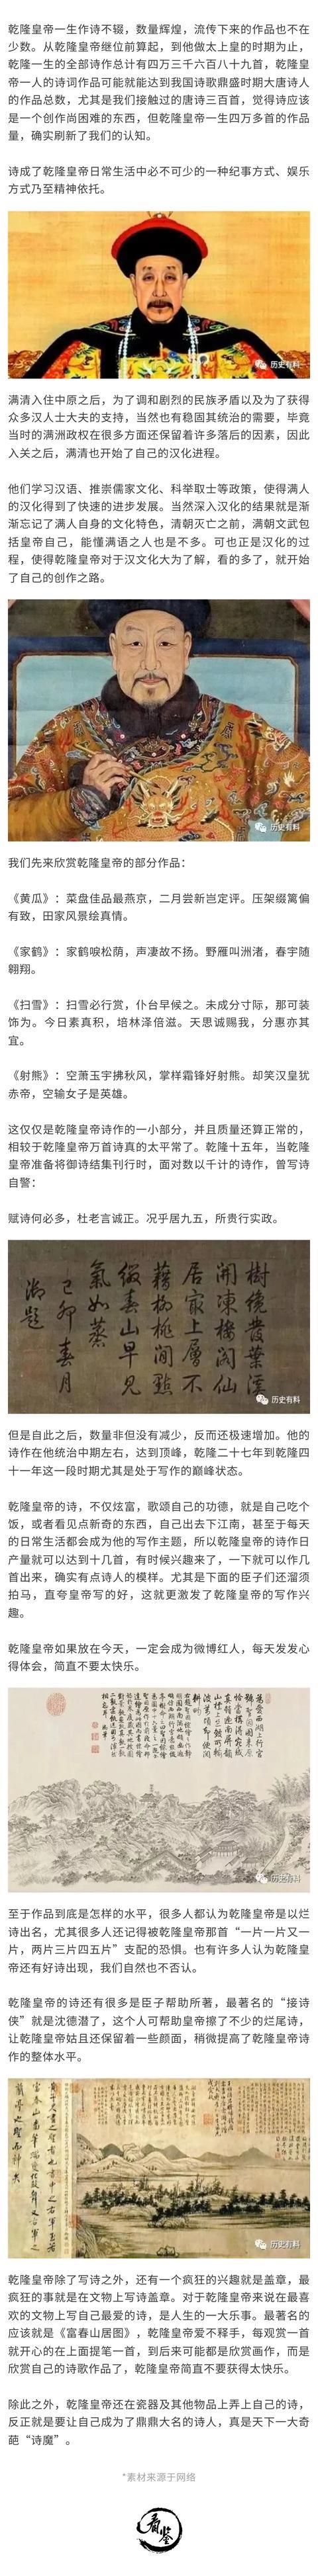 乾隆皇帝一生作诗不辍，数量辉煌，流传下来的作品也不在
少数。从乾隆皇帝继位前算起，到他做太上皇的时期为止，
乾隆一生的全部诗作总计有四万三千六百八十九首，乾隆皇
帝一人的诗词作品可能就能达到我国诗歌鼎盛时期大唐诗人
的作品总数，尤其是我们接触过的唐诗三百首，觉得诗应该
是一个创作尚困难的东西，但乾隆皇帝一生四万多首的作品
量，确实刷新了我们的认知。
诗成了乾隆皇帝日常生活中必不可少的一种纪事方式、娱乐
方式乃至精神依托。
历史有料
满清入住中原之后，为了调和剧烈的民族矛盾以及为了获得
众多汉人士大夫的支持，当然也有稳固其统治的需要，毕竟
当时的满洲政权在很多方面还保留着许多落后的因素，因此
入关之后，满清也开始了自己的汉化进程。
他们学习汉语、推崇儒家文化、科举取士等政策，使得满人
的汉化得到了快速的进步发展。当然深入汉化的结果就是渐
渐忘记了满人自身的文化特色，清朝灭亡之前，满朝文武包
括皇帝自己，能懂满语之人也是不多。可也正是汉化的过
程，使得乾隆皇帝对于汉文化大为了解，看的多了，就开始
了自己的创作之路。
历史有料
我们先来欣赏乾隆皇帝的部分作品：
《黄瓜》：菜盘佳品最燕京，二月尝新岂定评。压架缀篱偏
有致，田家风景绘真情。
《家鹤》：家鹤唳松荫，声凄故不扬。野雁叫洲渚，春宇随
翱翔。
《扫雪》：扫雪必行赏，仆台早候之。未成分寸际，那可装
饰为。今日素真积，培林泽倍滋。天思诚赐我，分惠亦其
宜。
《射熊》：空萧玉宇拂秋风，掌样霜锋好射熊。却笑汉皇犹
赤帝，空输女子是英雄。
这仅仅是乾隆皇帝诗作的一小部分，并且质量还算正常的，
相较于乾隆皇帝万首诗真的太平常了。乾隆十五年，当乾隆
皇帝准备将御诗结集刊行时，面对数以千计的诗作，曾写诗
自警：
赋诗何必多，杜老言诚正。况乎居九五，所贵行实政。
樹繞叢葉
開凍樓閣仙
居最上層不
藉桃間點
綴春山早見
氣如蒸
己卯春月
御題
历史有料
但是自此之后，数量非但没有减少，反而还极速增加。他的
诗作在他统治中期左右，达到顶峰，乾隆二十七年到乾隆四
十一年这一段时期尤其是处于写作的巅峰状态。
乾隆皇帝的诗，不仅炫富，歌颂自己的功德，就是自己吃个
饭，或者看见点新奇的东西，自己出去下江南，甚至于每天
的日常生活都会成为他的写作主题，所以乾隆皇帝的诗作日
产量就可以达到十几首，有时候兴趣来了，一下就可以作几
首出来，确实有点诗人的模样。尤其是下面的臣子们还溜须
拍马，直夸皇帝写的好，这就更激发了乾隆皇帝的写作兴
趣。
乾隆皇帝如果放在今天，一定会成为微博红人，每天发发心
得体会，简直不要太快乐。
历史有料
至于作品到底是怎样的水平，很多人都认为乾隆皇帝是以烂
诗出名，尤其很多人还记得被乾隆皇帝那首“一片一片又一
片，两片三片四五片”支配的恐惧。也有许多人认为乾隆皇
帝还有好诗出现，我们自然也不否认。
乾隆皇帝的诗还有很多是臣子帮助所著，最著名的“接诗
侠”就是沈德潜了，这个人可帮助皇帝擦了不少的烂尾诗，
让乾隆皇帝姑且还保留着一些颜面，稍微提高了乾隆皇帝诗
作的整体水平。
历史有料
乾隆皇帝除了写诗之外，还有一个疯狂的兴趣就是盖章，最
疯狂的事就是在文物上写诗盖章。对于乾隆皇帝来说在最喜
欢的文物上写自己最爱的诗，是人生的一大乐事。最著名的
应该就是《富春山居图》，乾隆皇帝爱不释手，每观赏一首
就开心的在上面提笔一首，到后来可能都是欣赏画作，而是
欣赏自己的诗歌作品了，乾隆皇帝简直不要获得太快乐。
除此之外，乾隆皇帝还在瓷器及其他物品上弄上自己的诗，
反正就是要让自己成为了鼎鼎大名的诗人，真是天下一大奇
葩“诗魔”。
*素材来源于网络
看鉴